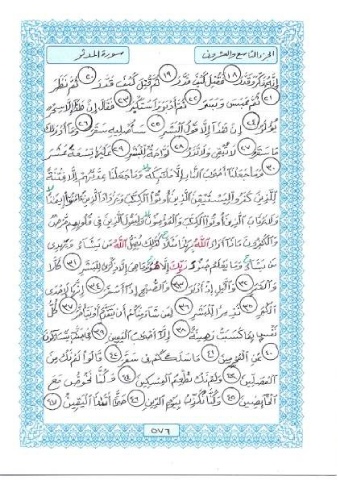 الجزء التاسع والعشرون
سورة المدثر
إنه فكر وقدر ١٨ فقتل كيف قدر ١٩ ثم قتل كيف قدر ٢٠ ثم نظر
٢١ ثم عبس وبسر ٢٢ ثم أدبر واستكبر ٢٣ فقال إن هذا إلا سحر
يؤثر ٢٤ إن هذا إلا قول البشر ٢٥ سأصليه سقر ٢٦ وما أدرىك
ما سقر ٢٧ لا تبقي ولا تذر ٢٨ لواحة للبشر ٢٩ عليها تسعة عشر
٣٠ وما جعلنا أصحب النار إلا ملئكة وما جعلنا عدتهم إلا فتنة
للذين كفروا ليستيقن الذين أوتوا الكتب ويزداد الذين ءامنوا إيمنا
ولا يرتاب الذين أوتوا الكتب والمؤمنون وليقول الذين في قلوبهم مرض
والكفرون ماذا أراد الله بهذا مثلا كذلك يضل الله من يشاء ويهدي
من يشاء وما يعلم جنود ربك إلا هو وما هي إلا ذكرى للبشر ٣١ كلا
والقمر ٣٢ واليل إذ أدبر ٣٣ والصبح إذا أسفر ٣٤ إنها لإحدى
الكبر ٣٥ نذيرا للبشر ٣٦ لمن شاء منكم أن يتقدم أو يتأخر ٣٧ كل
نفس بما كسبت رهينة ٣٨ إلا أصحب اليمين ٣٩ في جنت يتساءلون
٤٠ عن المجرمين ٤١ ما سلككم في سقر ٤٢ قالوا لم نك من
المصلين ٤٣ ولم نك نطعم المسكين ٤٤ وكنا نخوض مع
الخائضين ٤٥ وكنا نكذب بيوم الدين ٤٦ حتى أتىنا اليقين ٤٧
٥٧٦